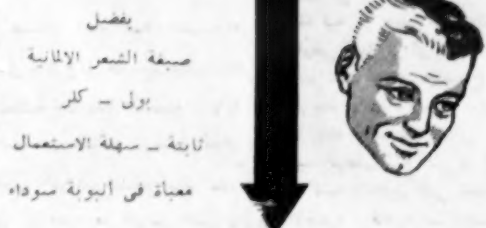 بفضل
صبغة الشعر الالمانية
بولى ــ كلر
ثابتة ــ سهلة الاستعمال
معبأة فى أنبوبة سوداء